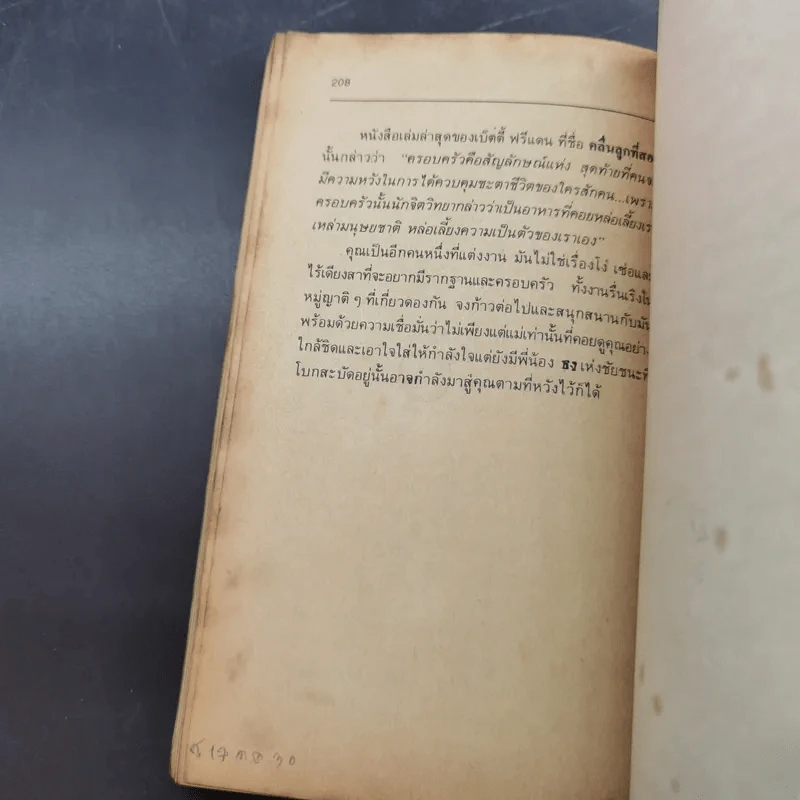 208
หนังสือเล่มล่าสุดของเบ็ตตี้ ฟรีแดน ที่ชื่อ คลื่นลูกที่สอ
นั้นกล่าวว่า "ครอบครัวคือสัญลักษณ์แห่ง สุดท้ายที่คนจ
มีความหวังในการได้ควบคุมชะตาชีวิตของใครสักคน...เพรา
ครอบครัวนั้นนักจิตวิทยากล่าวว่าเป็นอาหารที่คอยหล่อเลี้ยงเร
เหล่ามนุษยชาติ หล่อเลี้ยงความเป็นตัวของเราเอง"
คุณเป็นอีกคนหนึ่งที่แต่งงาน มันไม่ใช่เรื่องโง่ เซ่อและ
ไร้เดียงสาที่จะอยากมีรากฐานและครอบครัว ทั้งงานรื่นเริงใน
หมู่ญาติ ๆ ที่เกี่ยวดองกัน จงก้าวต่อไปและสนุกสนานกับมัน
พร้อมด้วยความเชื่อมั่นว่าไม่เพียงแต่แม่เท่านั้นที่คอยดูคุณอย่า
ใกล้ชิดและเอาใจใส่ให้กำลังใจแต่ยังมีพี่น้อง ธงแห่งชัยชนะที่
โบกสะบัดอยู่นั้นอาจกำลังมาสู่คุณตามที่หวังไว้ก็ได้